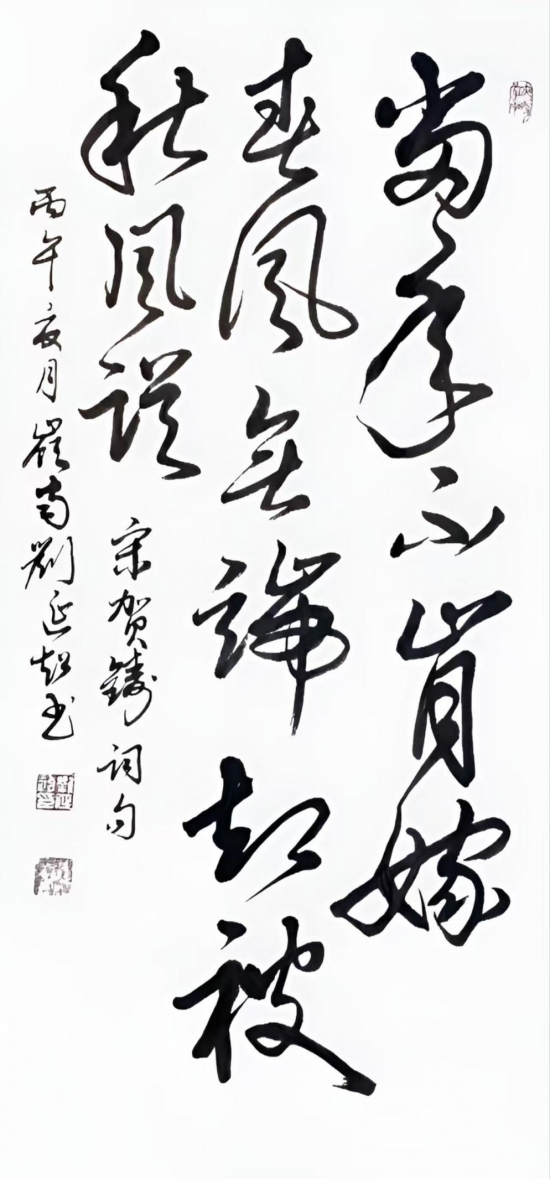 当年不肯嫁
春风无端却被
秋风误
宋贺铸词句
丙午夏月崔寺刘延超书